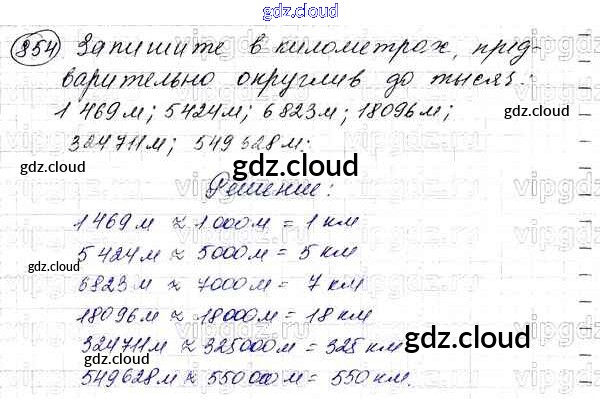 gdz.cloud
854 Запишите в километрах, пред-
варительно округлив до тысяч:
1 469 м; 5 424 м; 6 823 м; 18 096 м;
324 711 м; 549 628 м.
gdz.cloud
gdz.cloud
Решение:
1 469 м ≈ 1 000 м = 1 км
5 424 м ≈ 5000 м = 5 км
gdz.cloud
6823 м ≈ 7000 м = 7 км
18096 м ≈ 18000 м = 18 км
gdz.cloud
324711 м ≈ 325000 м = 325 км
gdz.cloud
549628 м ≈ 550 000 м = 550 км.